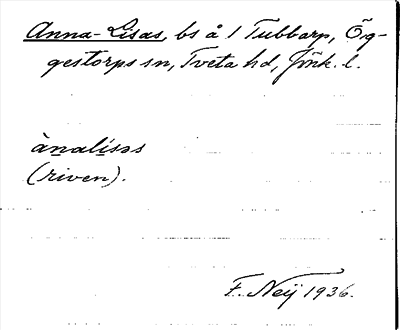 Anna-Lisas, bs å 1 Tubbarp, Ög-
gestorps sn, Tveta hd, Jönk. l.
ànalísəs
(riven).
F. Neij 1936.